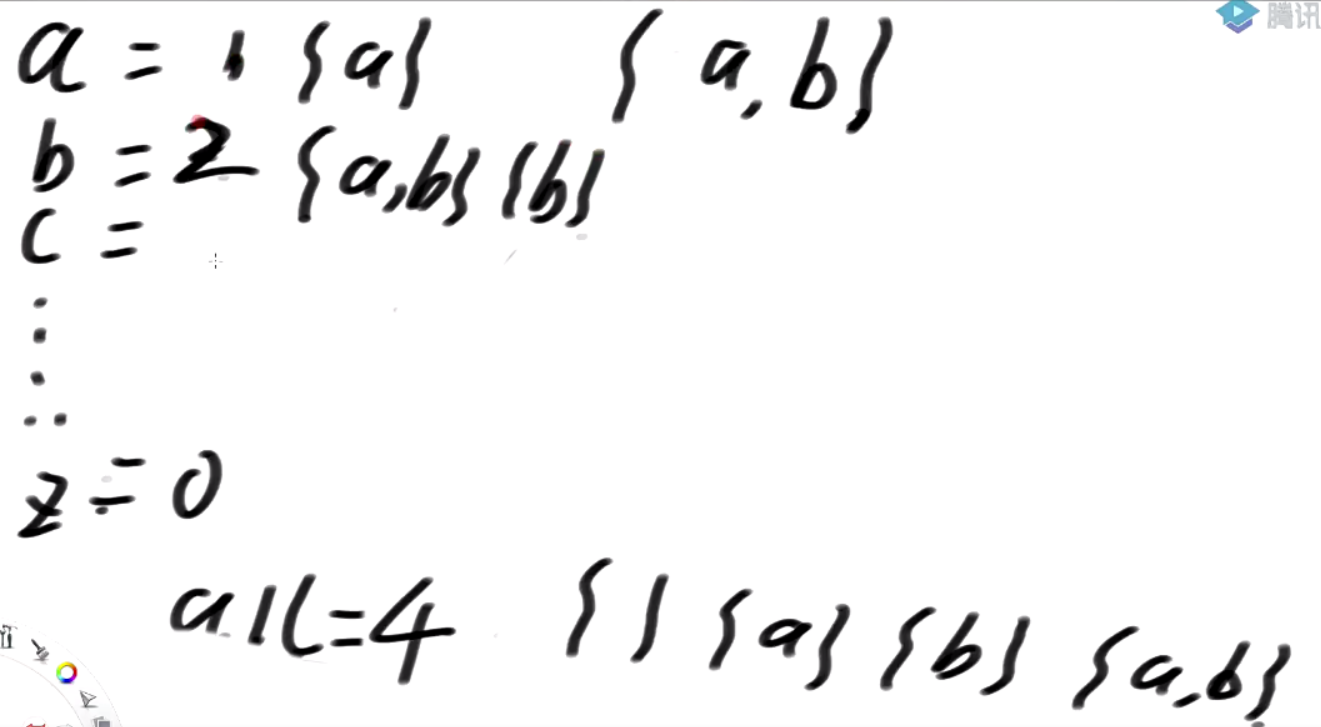 a = 1 {a} {a,b}
b = 2 {a,b} {b}
c =
z = 0
all=4 {} {a} {b} {a,b}
腾讯